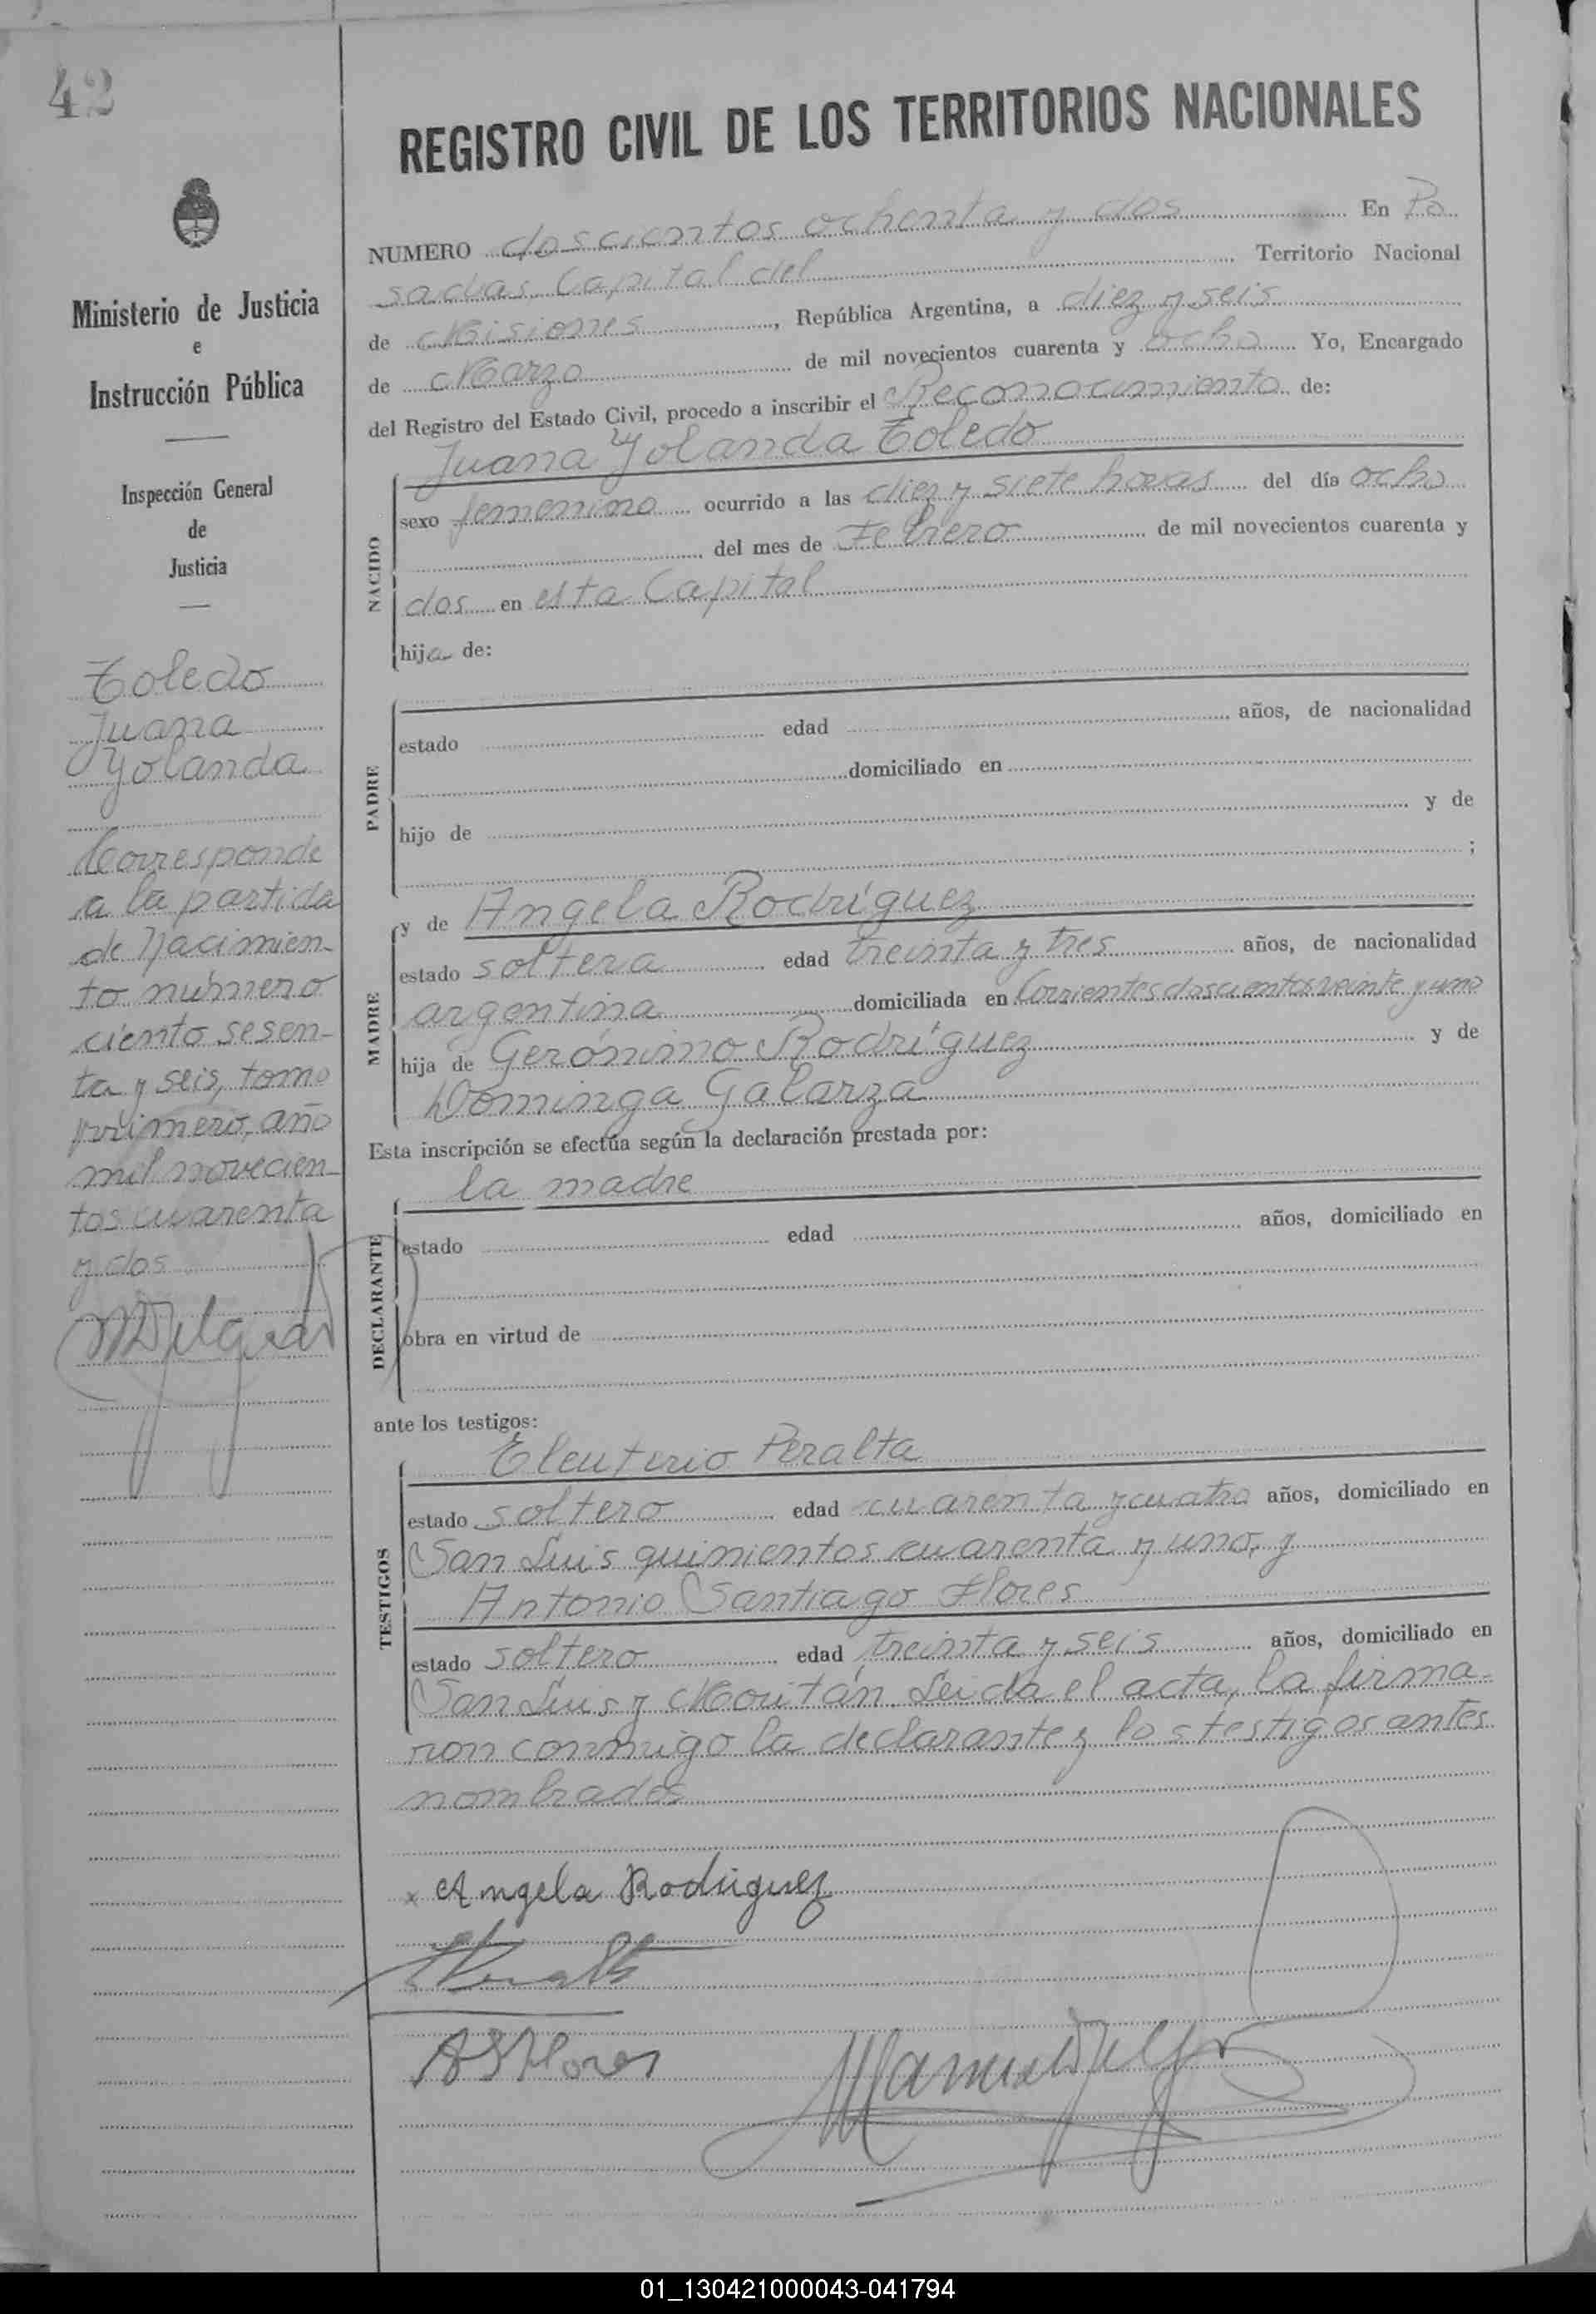 42
REGISTRO CIVIL DE LOS TERRITORIOS NACIONALES
Ministerio de Justicia
e
Instrucción Pública
Inspección General
de
Justicia
Toledo
Juana
Yolanda
Corresponde
a la partida
de Nacimien-
to número
ciento sesen-
ta y seis, tomo
primero, año
mil novecien-
tos cuarenta
y dos
NUMERO doscientos ochenta y dos En Po
sadas Capital del Territorio Nacional
de Misiones, República Argentina, a diez y seis
de Marzo de mil novecientos cuarenta y ocho Yo, Encargado
del Registro del Estado Civil, procedo a inscribir el Reconocimiento de:
Juana Yolanda Toledo
NACIDO
sexo femenino ocurrido a las diez y siete horas del día ocho
del mes de Febrero de mil novecientos cuarenta y
dos en esta Capital
hija de:
PADRE
estado edad años, de nacionalidad
domiciliado en
hijo de y de
;
y de Angela Rodríguez
MADRE
estado soltera edad treinta y tres años, de nacionalidad
argentina domiciliada en Corrientes doscientos veinte y uno
hija de Gerónimo Rodríguez y de
Dominga Galarza
Esta inscripción se efectúa según la declaración prestada por:
la madre
DECLARANTE
estado edad años, domiciliado en
obra en virtud de
ante los testigos:
Eleuterio Peralta
TESTIGOS
estado soltero edad cuarenta y cuatro años, domiciliado en
San Luis quinientos cuarenta y uno, y
Antonio Santiago Flores
estado soltero edad treinta y seis años, domiciliado en
San Luis y Moritán. Leida el acta, la firma-
ron conmigo la declarante y los testigos antes
nombrados
x Angela Rodriguez
ASFlores
01_130421000043-041794